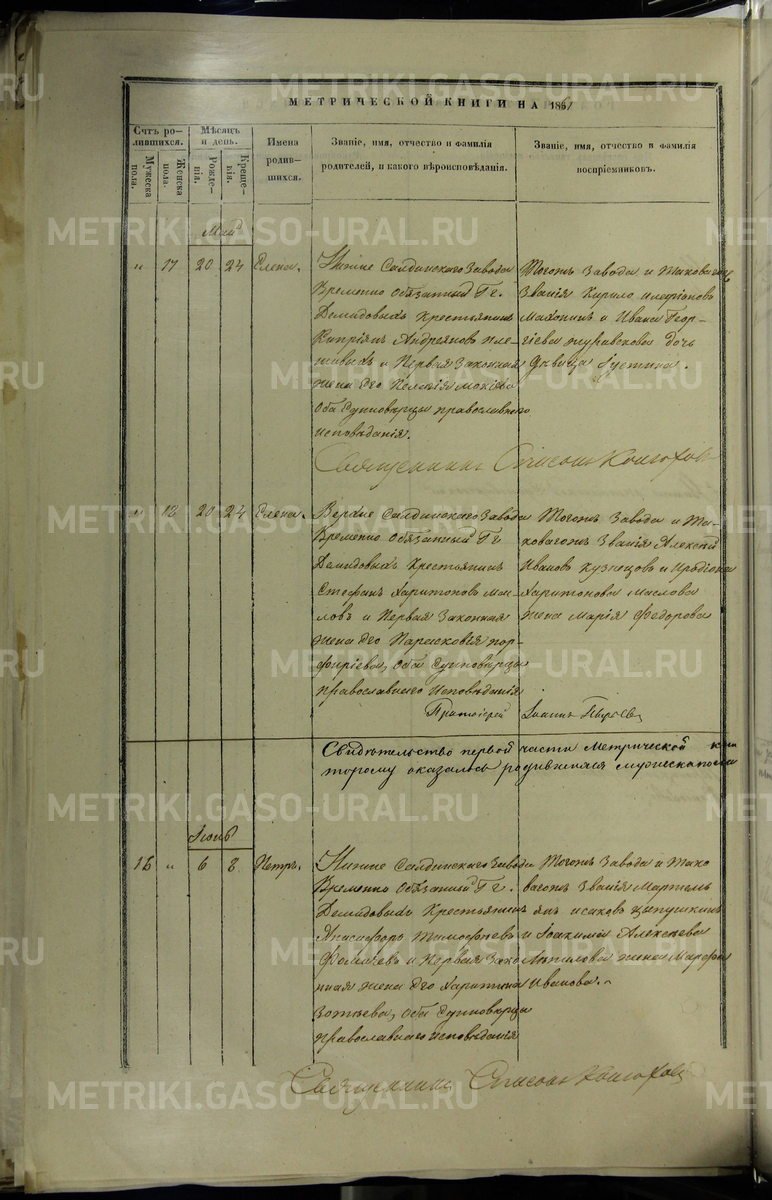 МЕТРИЧЕСКОЙ КНИГИ НА 1861
Счтъ ро-
дившихся.
Мужеска
пола.
Женска
пола.
Мѣсяцъ
и день.
Рожде-
нія.
Креще-
нія.
Имена
родив-
шихся.
Званіе, имя, отчество и фамилія
родителей, и какого вѣроисповѣданія.
Званіе, имя, отчество и фамилія
воспріемниковъ.
Май
" 17 20 24 Елена.
Нижне Салдинскаго Завода
Временно обязанный Гг.
Демидовыхъ Крестьянинъ
Кипріянъ Андреяновъ
и Первая Законная
жена его Пелагія Мокіева
Оба Единовѣрцы православнаго
исповѣданія.
Тогожъ Завода и таковагожъ
Званія Кирило
и Ивана Геор-
гіева Журавлева дочь
дѣвица Густина.
Священникъ Стефанъ
" 18 20 24 Елена.
Верхне Салдинскаго Завода
Временно Обязанный Гг.
Демидовыхъ Крестьянинъ
Стефанъ Харитоновъ Мас-
ловъ и Первая Законная
жена его Парасковія Пор-
фиріева, Оба Единовѣрцы
православнаго Исповѣданія
Тогожъ Завода и Та-
ковагожъ Званія Алексѣй
Ивановъ Кузнецовъ и Иродіона
Харитонова Маслова
жена Марія Федорова
Протоіерей Іоаннъ
Свидѣтельство первой части Метрической
торому оказалось родившихся мужеска пола
Іюнь
16 " 6 8 Петръ.
Нижне Салдинскаго Завода
Временно Обязанный Гг.
Демидовыхъ Крестьянинъ
Анисифоръ Тимофѣевъ
и Первая Зако-
нная жена его Харитина
Зотѣева, Оба Единовѣрцы
православнаго исповѣданія
Тогожъ Завода и Тако
вагожъ Званія Мартемь
янъ Исаковъ Цыпушкинъ
и Іоакима Алексѣева
жена Марфа
Иванова.
Священникъ Стефанъ
METRIKI.GASO-URAL.RU